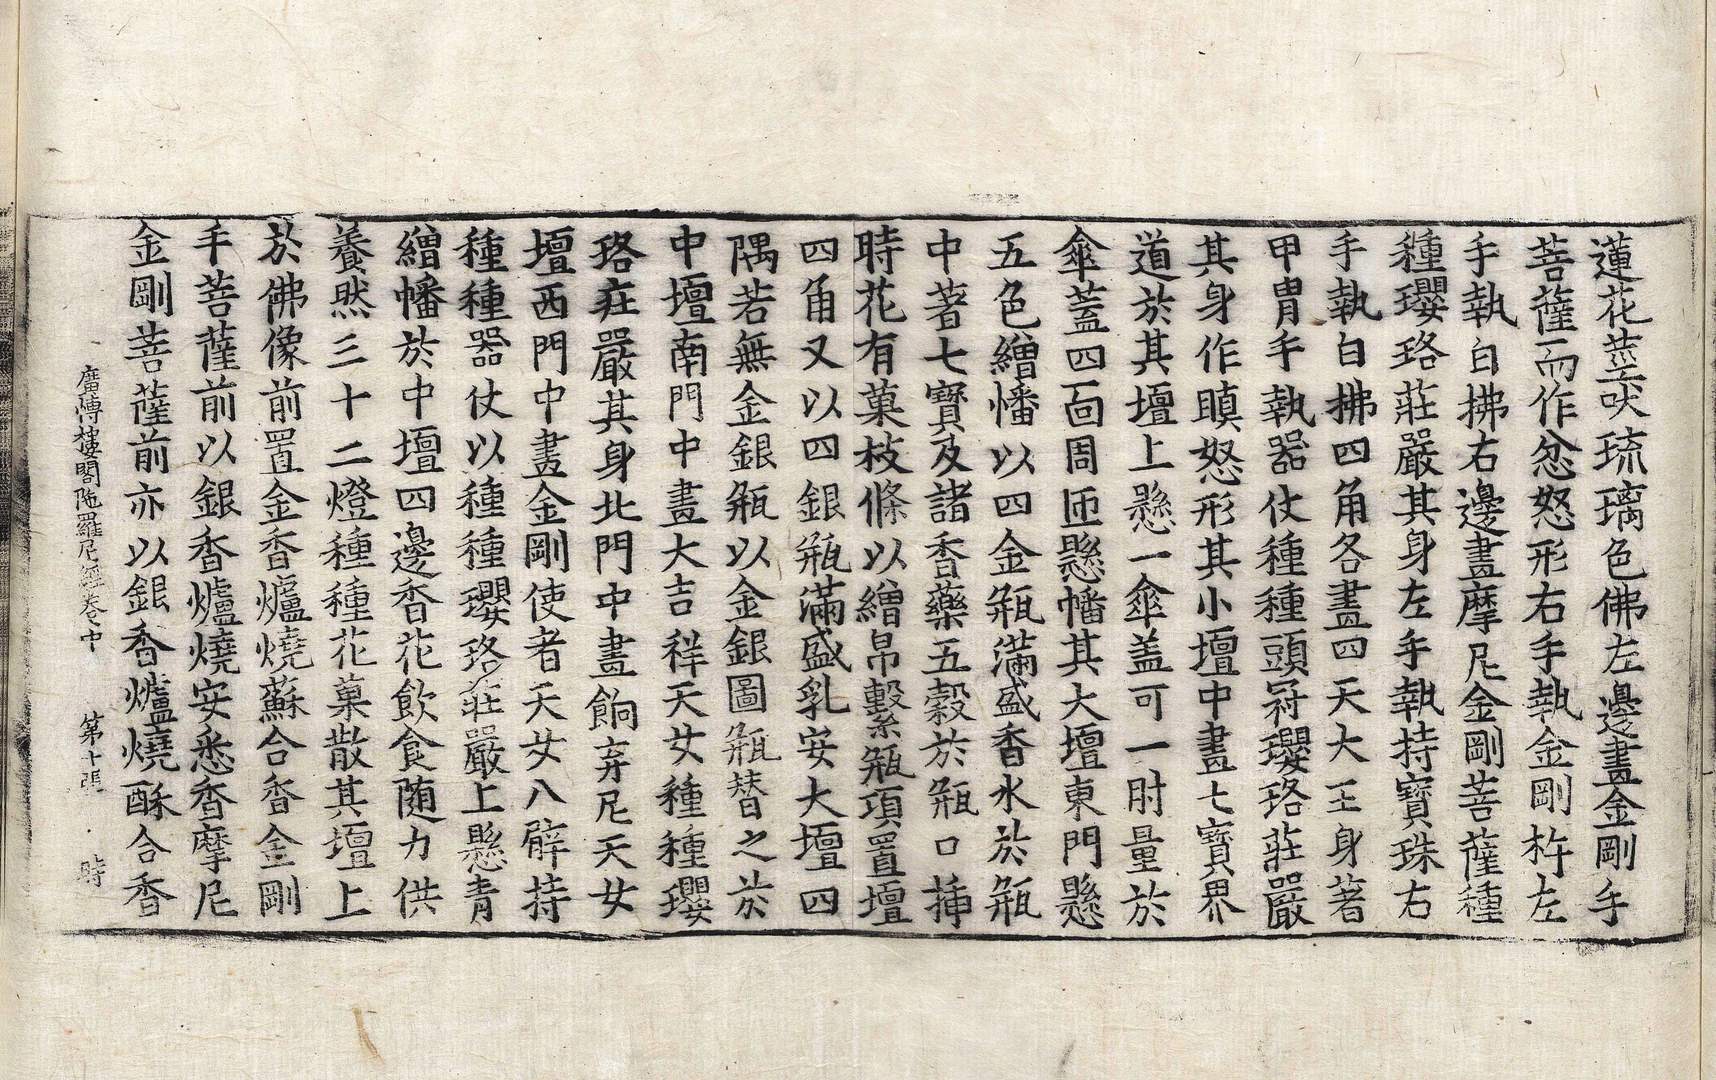 蓮花莖吠琉璃色佛左邊畫金剛手
菩薩而作忿怒形右手執金剛杵左
手執白拂右邊畫摩尼金剛菩薩種
種瓔珞莊嚴其身左手執持寶珠右
手執白拂四角各畫四天大王身著
甲冑手執器仗種種頭冠瓔珞莊嚴
其身作瞋怒形其小壇中畫七寶界
道於其壇上懸一傘盖可一肘量於
傘蓋四面周匝懸幡其大壇東門懸
五色繒幡以四金瓶滿盛香水於瓶
中著七寶及諸香藥五穀於瓶口揷
時花有菓枝條以繒帛繫瓶項置壇
四角又以四銀瓶滿盛乳安大壇四
隅若無金銀瓶以金銀圖瓶替之於
中壇南門中畫大吉祥天女種種瓔
珞莊嚴其身北門中畫餉弃尼天女
壇西門中畫金剛使者天女八臂持
種種器仗以種種瓔珞莊嚴上懸青
繒幡於中壇四邊香花飲食随力供
養然三十二燈種種花菓散其壇上
於佛像前置金香爐燒蘇合香金剛
手菩薩前以銀香爐燒安悉香摩尼
金剛菩薩前亦以銀香爐燒酥合香
廣博樓閣陁羅尼經卷中 第十張 時